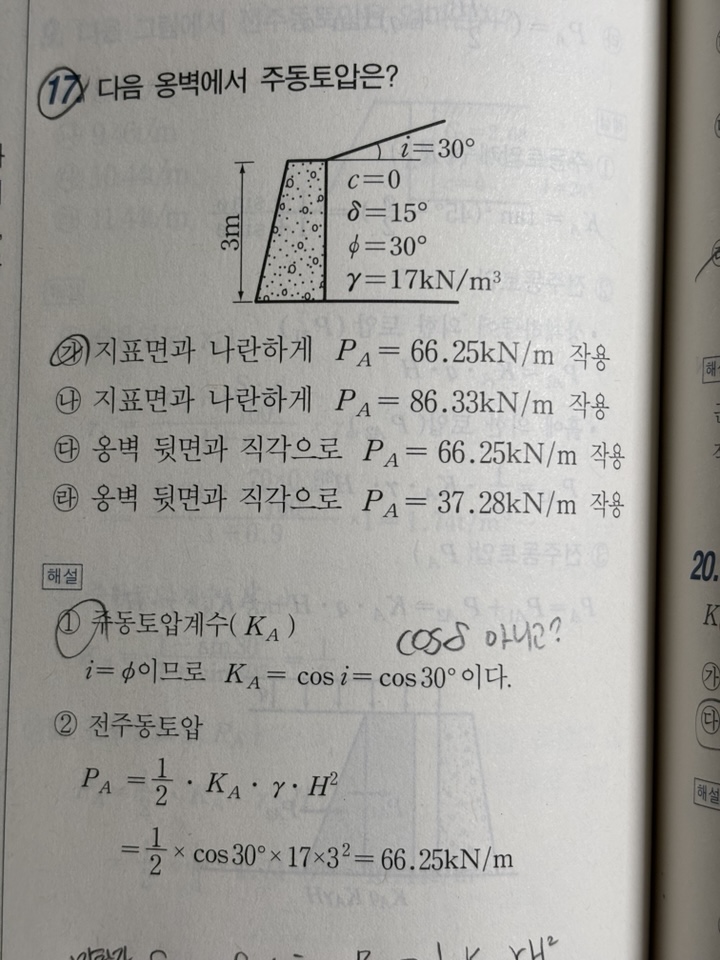 17. 다음 옹벽에서 주동토압은?
i=30°
c=0
δ=15°
3m
ϕ=30°
γ=17kN/m³
㉮ 지표면과 나란하게 P_A = 66.25kN/m 작용
㉯ 지표면과 나란하게 P_A = 86.33kN/m 작용
㉰ 옹벽 뒷면과 직각으로 P_A = 66.25kN/m 작용
㉱ 옹벽 뒷면과 직각으로 P_A = 37.28kN/m 작용
해설
① 주동토압계수( K_A )
cosδ 아니고?
i= ϕ이므로 K_A = cos i = cos30°이다.
② 전주동토압
P_A = 1/2 · K_A · γ · H²
= 1/2 × cos30° × 17 × 3² = 66.25kN/m
20.
㉮
㉰
해설